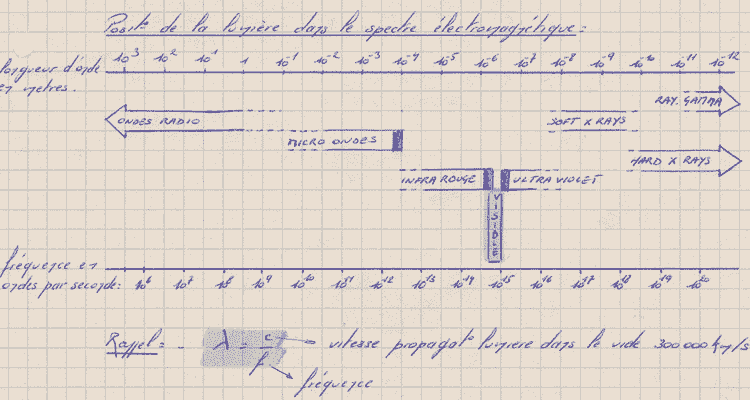 Positº de la lumière dans le spectre électromagnétique :
longueur d'onde en metres.
10³ 10² 10¹ 1 10⁻¹ 10⁻² 10⁻³ 10⁻⁴ 10⁻⁵ 10⁻⁶ 10⁻⁷ 10⁻⁸ 10⁻⁹ 10⁻¹⁰ 10⁻¹¹ 10⁻¹²
RAY. GAMMA
ONDES RADIO
SOFT X RAYS
MICRO ONDES
HARD X RAYS
INFRA ROUGE
ULTRA VIOLET
VISIBLE
fréquence en
ondes par seconde:
10⁶ 10⁷ 10⁸ 10⁹ 10¹⁰ 10¹¹ 10¹² 10¹³ 10¹⁴ 10¹⁵ 10¹⁶ 10¹⁷ 10¹⁸ 10¹⁹ 10²⁰
Rappel : - λ = c / f
vitesse propagatº lumiere dans le vide 300 000 km/s
fréquence